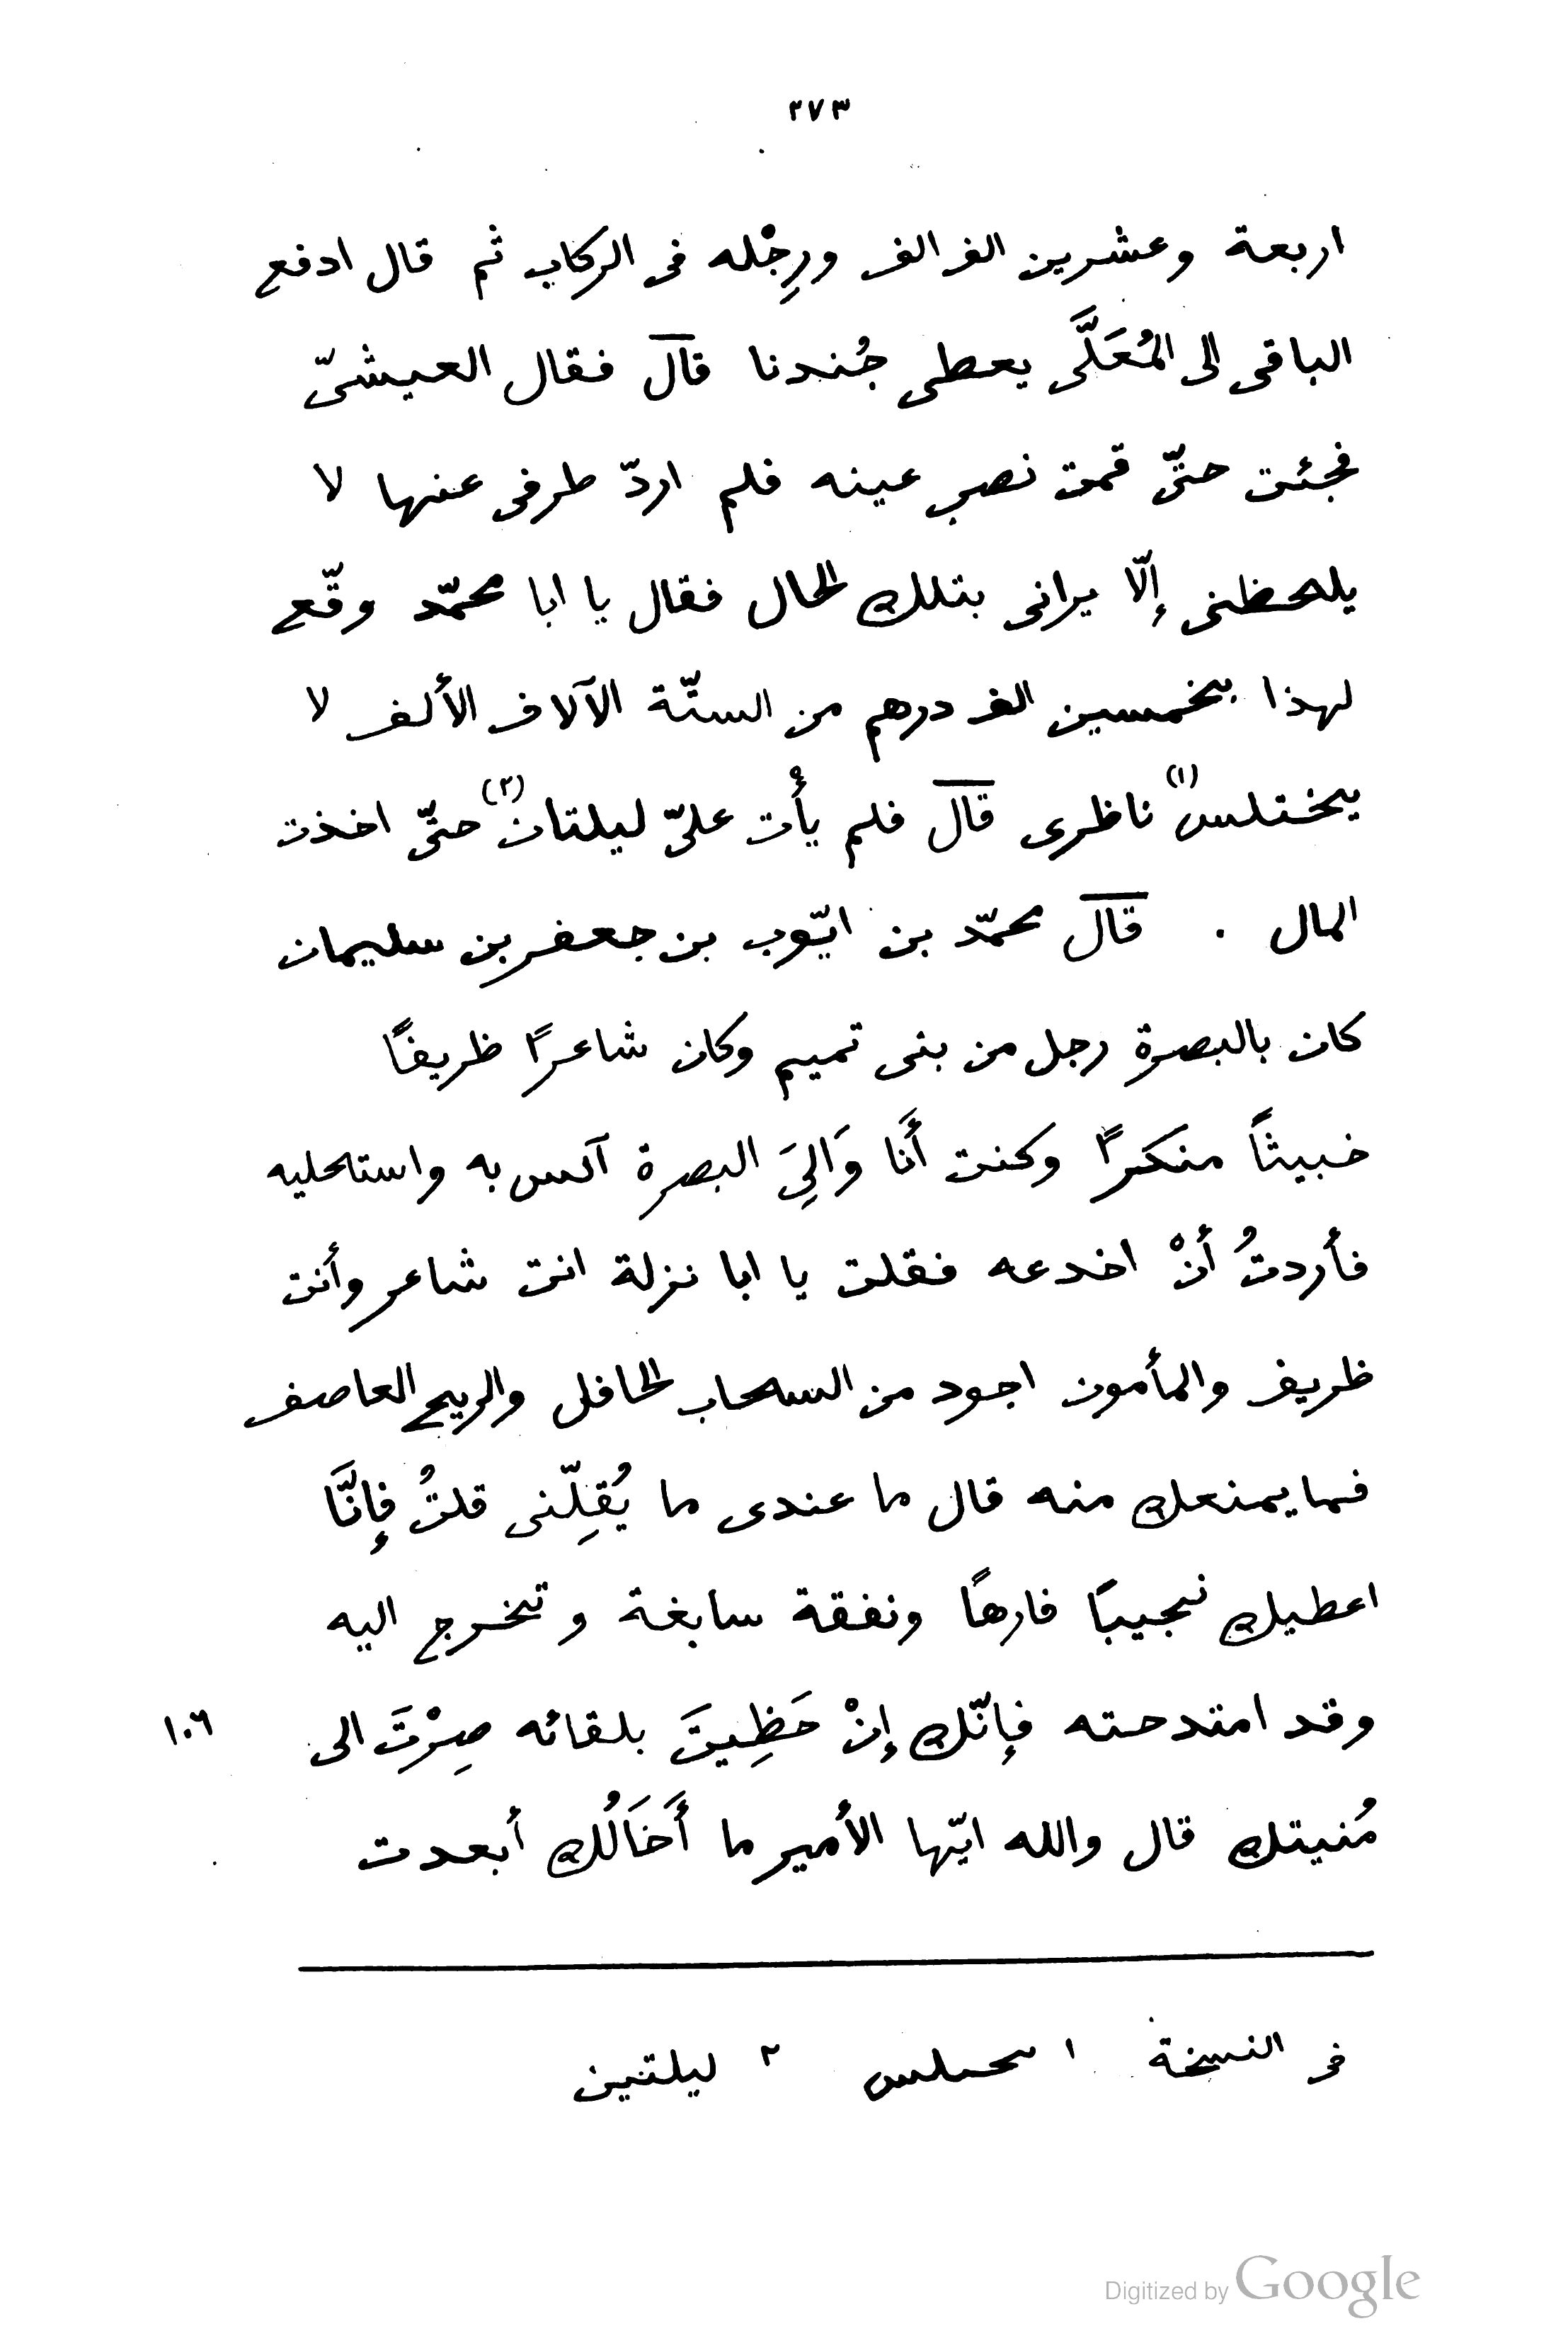 ٢٧٣
اربعة وعشرين الف الف ورِجْله فى الركاب ثم قال ادفع
الباقى الى المُعَلَّى يعطى جُندنا قال فقال العيشىّ
فجئت حتىّ قمت نصب عينه فلم اردّ طرفى عنها لا
يلحظنى إلّا يرانى بتلك الحال فقال يا ابا محمّد وقّع
لهذا بخمسين الف درهم من الستّة الآلاف الألف لا
يختلس(١) ناظرى قال فلم يأْت علىّ ليلتان(٢) حتىّ اخذت
المال . قال محمّد بن ايّوب بن جعفر بن سليمان
كان بالبصرة رجل من بنى تميم وكان شاعرًا ظريفًا
خبيثاً منكرًا وكنت أَنا وَالِىَ البصرة آنس به واستحليه
فأردتُ أنْ اخدعه فقلت يا ابا نزلة انت شاعر وأنت
ظريف والمأمون اجود من السحاب الحافل والريح العاصف
فما يمنعك منه قال ما عندى ما يُقِلّنى قلتُ فإنَّا
اعطيك نجيبًا فارهًا ونفقة سابغة وتخرج اليه
وقد امتدحته فإنّك إنْ حَظِيتَ بلقائه صِرْتَ الى
١٠٦
مُنيتك قال والله ايّها الأمير ما أَخَالُك أبعدت
فى النسخة ١ ىحىلس ٢ ليلتين
Digitized by Google